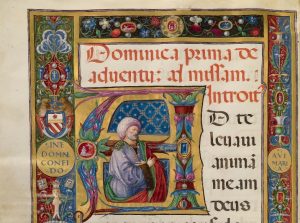 Dominica prima de
adventu: ad missam.
Introit
D te
levavi
animã
meam
deus
INT
DOMN
CONFI
DO
AVE
MARI